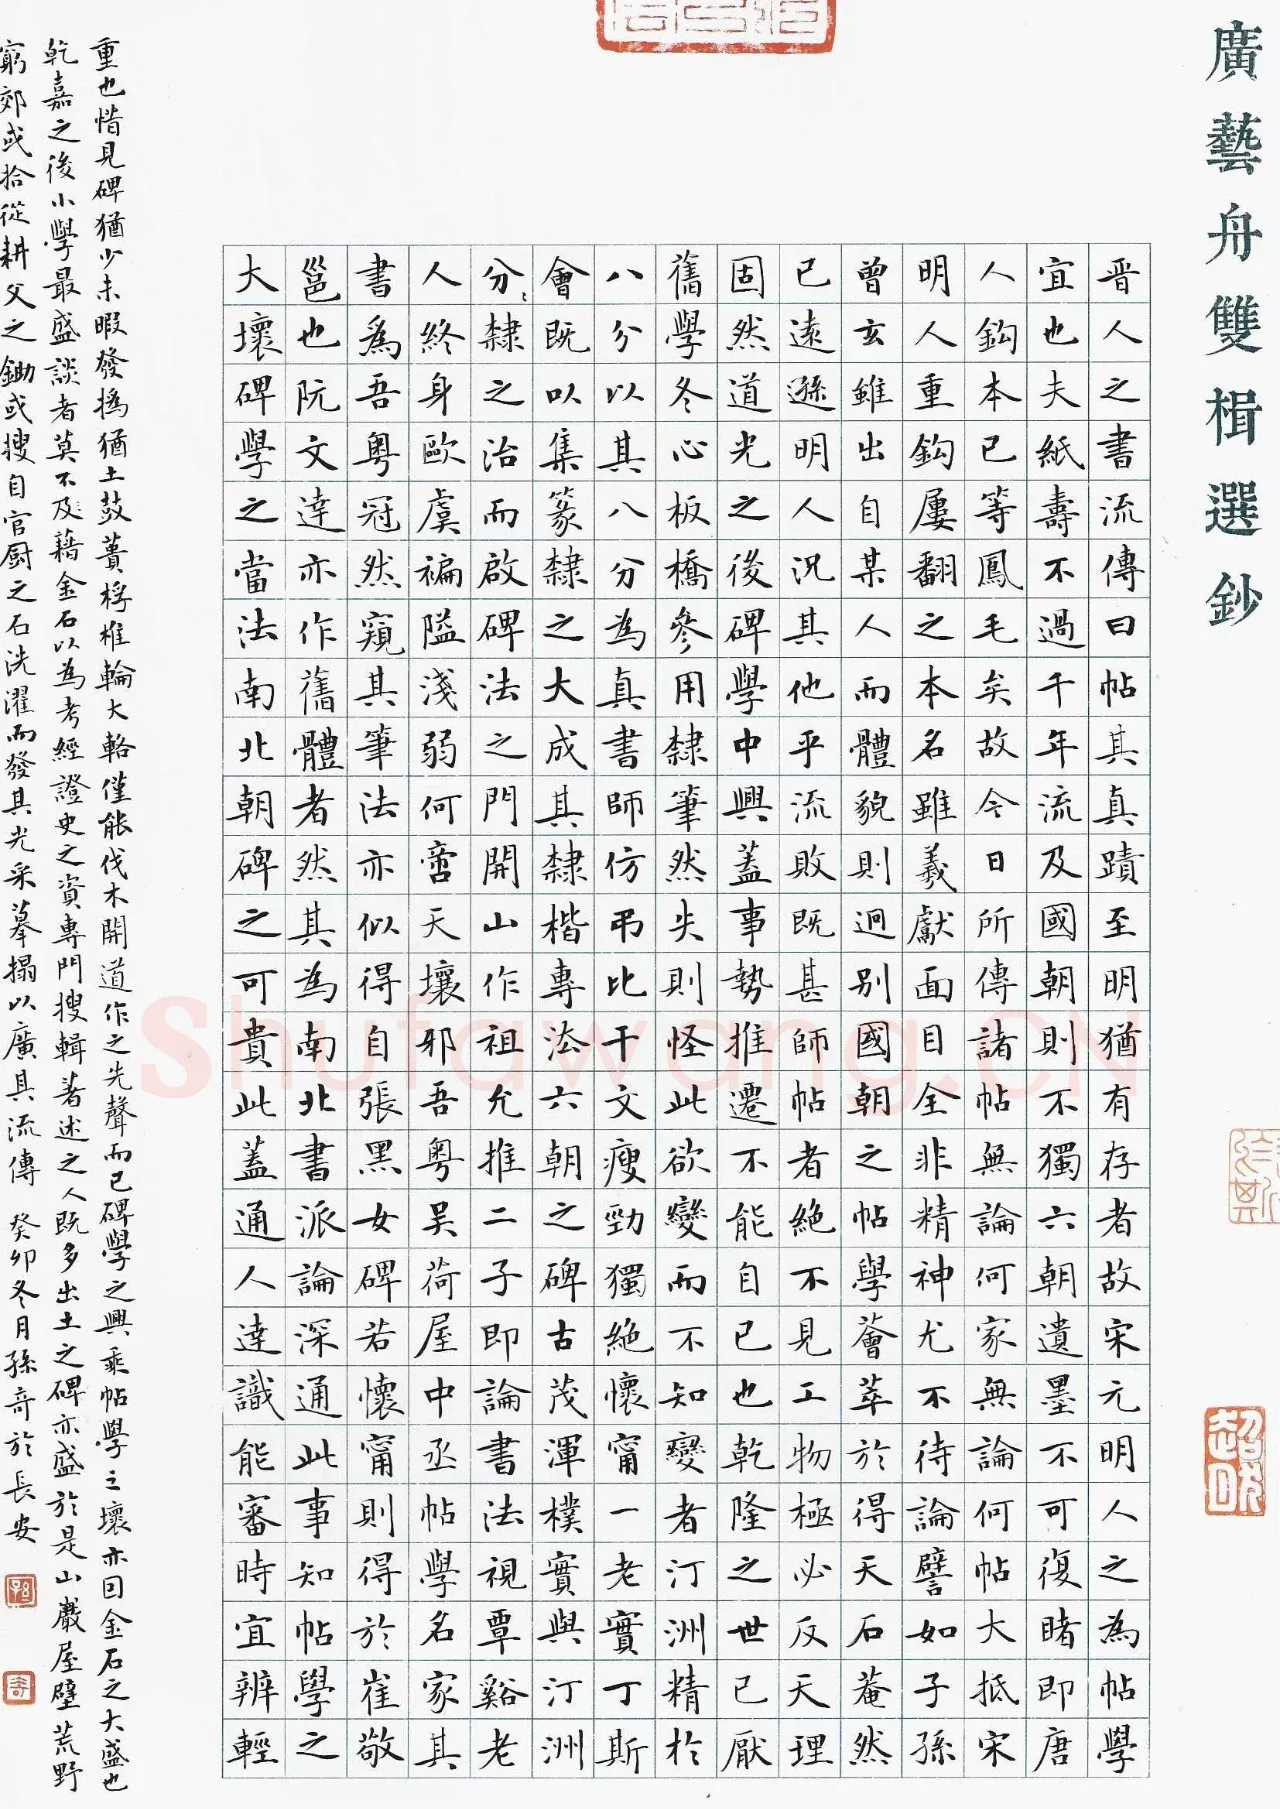 廣藝舟雙楫選鈔
晋人之書流傳曰帖其真蹟至明猶有存者故宋元明人之為帖學
宜也夫紙壽不過千年流及國朝則不獨六朝遺墨不可復睹即唐
人鈎本已等鳳毛矣故今日所傳諸帖無論何家無論何帖大抵宋
明人重鈎屢翻之本名雖羲獻面目全非精神尤不待論譬如子孫
曾玄雖出自某人而體貌則迥别國朝之帖學薈萃於得天石菴然
已遠遜明人況其他乎流敗既甚師帖者絶不見工物極必反天理
固然道光之後碑學中興蓋事勢推遷不能自已也乾隆之世已厭
舊學冬心板橋參用隸筆然失則怪此欲變而不知變者汀洲精於
八分以其八分為真書師仿弔比干文瘦勁獨絶懷甯一老實丁斯
會既以集篆隸之大成其隸楷專法六朝之碑古茂渾樸實與汀洲
分隸之治而啟碑法之門開山作祖允推二子即論書法視覃谿老
人終身歐虞褊隘淺弱何啻天壤邪吾粵吴荷屋中丞帖學名家其
書為吾粵冠然窺其筆法亦似得自張黑女碑若懷甯則得於崔敬
邕也阮文達亦作舊體者然其為南北書派論深通此事知帖學之
大壞碑學之當法南北朝碑之可貴此蓋通人達識能審時宜辨輕
重也惜見碑猶少未暇發撝猶土鼓蕢桴椎輪大輅僅能伐木開道作之先聲而已碑學之興乘帖學之壞亦因金石之大盛也
乾嘉之後小學最盛談者莫不及藉金石以為考經證史之資專門搜輯著述之人既多出土之碑亦盛於是山巖屋壁荒野
窮郊或拾從耕父之鋤或搜自官厨之石洗濯而發其光采摹搨以廣其流傳 癸卯冬月孫奇於長安
Shufawang.CN